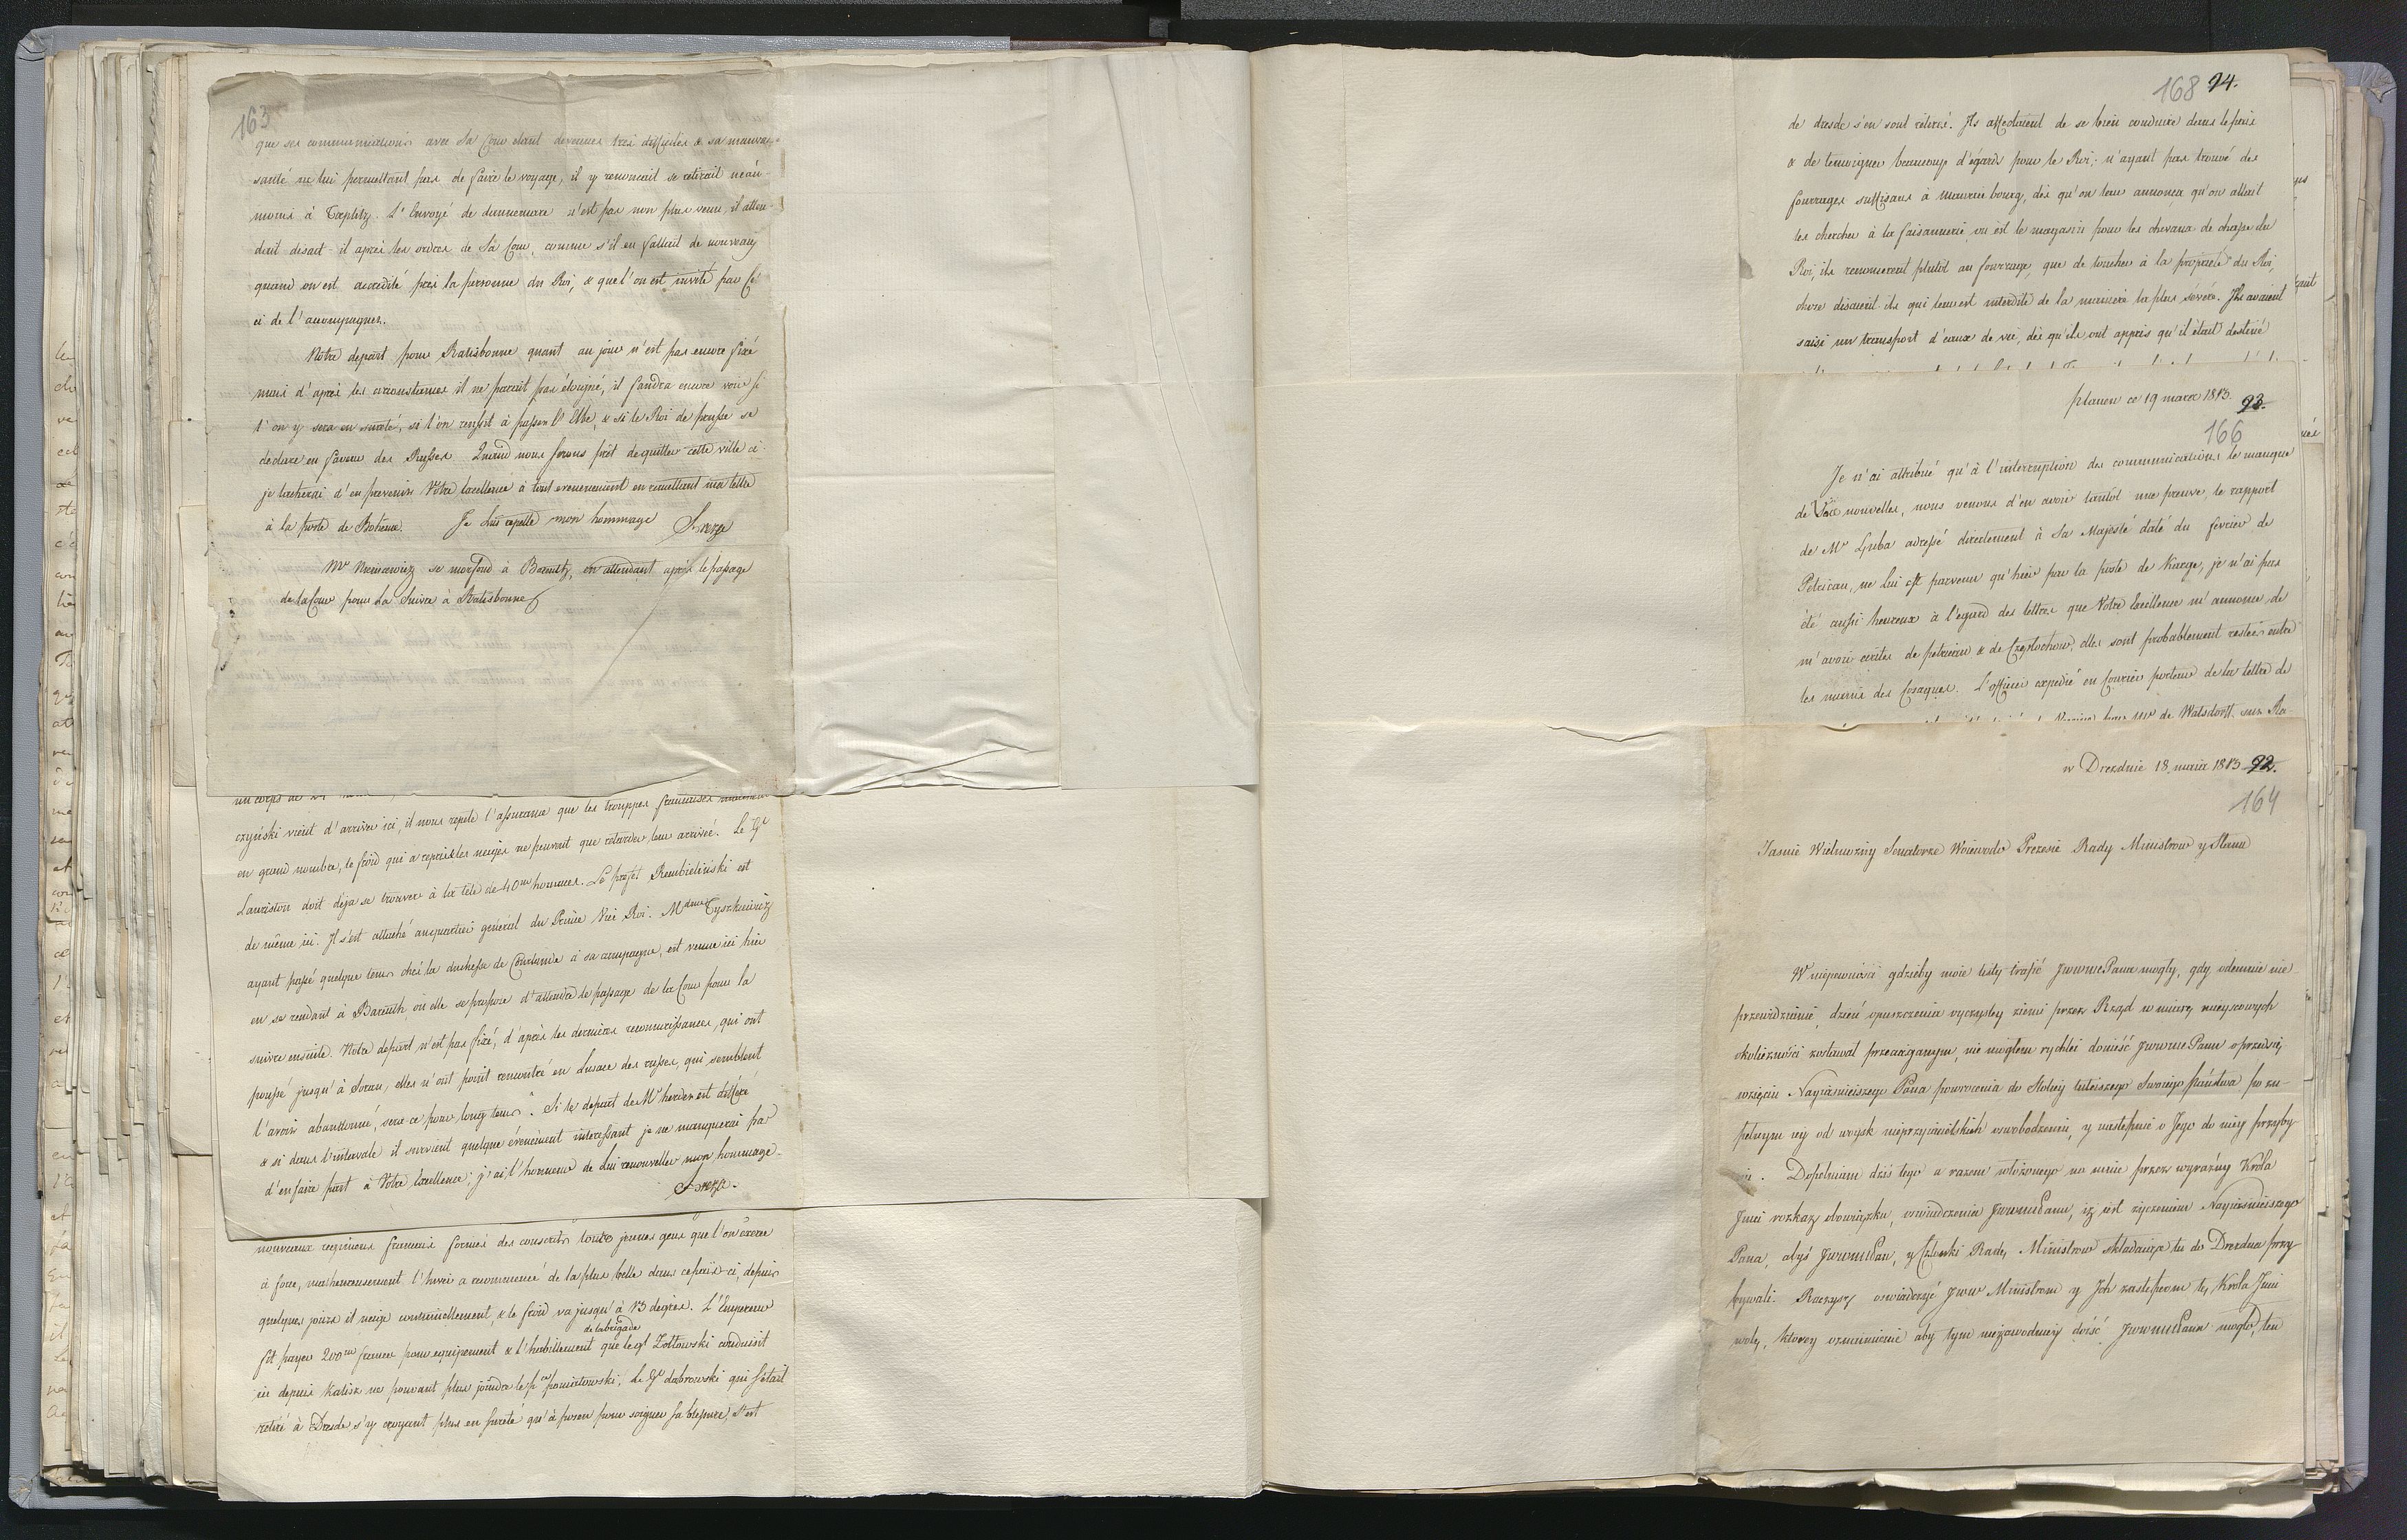 163
que ses communications avec Sa Cour etant devenues tres difficiles & sa mauvai-
santé ne lui permettant pas de faire le voyage, il y renoncait se retirait néan-
moins à Toeplitz. L'Envoyé de dannemarc n'est pas non plus venu, il atten-
dait disait-il après les ordres de Sa Cour, comme s'il en fallait de nouveaux
quand on est accredité près la personne du Roi, & que l'on est invité par Ce-
ci de l'accompagner.
Notre depart pour Ratisbonne quant au jour n'est pas encore fixé
mais d'après les circonstances il ne parait pas éloigné, il faudra encore voir si
l'on y sera en sureté, si l'on reussit à passer l'Elbe, & si le Roi de prusse se
declare en faveur des Russes. Quand nous serons prêt de quitter cette ville ci
je tacherai d'en prevenir Votre Excellence à tout evenement en remettant ma lettre
à la poste de Boheme. Je Lui repette mon hommage Breza
Mr Niemcewicz se morfond à Bareuth, en attendant après le passage
de la Cour pour La Suivre à Ratisbonne
un corps de
czyński vient d'arriver ici, il nous repete l'assurance que les trouppes françaises
en grand nombre, le froid qui a repris & les neiges ne peuvent que retarder leur arrivée. Le Gl
Lauriston doit deja se trouver à la tête de 40m hommes. Le prefet Rembieliński est
de même ici. Il s'est attaché au quartier général du Prince Vice Roi. Mdme Tyszkiewicz
ayant passé quelque tems chez la duchesse de Courlande à sa campagne, est venue ici hier
en se rendant à Bareuth, où elle se propose d'attendre le passage de la Cour pour la
suivre ensuite. Notre depart n'est pas fixé, d'après les dernieres reconnaissances, qui ont
poussé jusqu'à Sorau, elles n'ont point rencontré en Lusace des russes, qui semblent
l'avoir abandonné, sera-ce pour long tems? Si le depart de Mr herder est differé
& si dans l'intervale il survient quelque évenement interessant je ne manquerai pas
d'en faire part à Votre Excellence; j'ai l'honneur de Lui renouveller mon hommage
Breza.
nouveaux regimens francais formés des conscrits touts jeunes gens que l'on exerce
à force, malheureusement l'hiver a recommencé de la plus belle dans ce païs-ci, depuis
quelques jours il neige continuellement, & le froid va jusqu'à 13 degres. L'Empereur
de la brigade
fit payer 200m francs pour equipement & l'habillement que le gl Zoltowski conduisit
ici depuis Kalisz ne pouvant plus joindre le pce poniatowski, Le Gl dabrowski qui s'était
retiré à Dresde s'y croyant plus en sureté qu'à posen pour soigner sa blessure, s'est
168 94.
de dresde s'en sont retirés. Ils affectaient de se bien conduire dans le païs
& de temoigner beaucoup d'égards pour le Roi; n'ayant pas trouvé des
fourrages suffisans à Mauricebourg, dès qu'on leur annonca qu'on allait
les chercher à la faisannerie, où est le magasin pour les chevaux de chasse du
Roi, ils renoncerent plutôt au fourrage, que de toucher à la propriété du Roi,
chose disaient-ils qui leur est interdite de la maniere la plus sévére. Ils avaient
saisi un transport d'eaux de vie, dès qu'ils ont appris qu'il était destiné
plauen ce 19 mars 1813.
93.
166
Je n'ai attribué qu'à l'interruption des communications le manque
de Vos nouvelles, nous venons d'en avoir tantôt une preuve, le rapport
de Mr Łuba adressé directement à Sa Majesté daté du fevrier de
Petricau, ne lui est parvenu qu'hier par la poste de Karge, je n'ai pas
été aussi heureux à l'egard des lettres que Votre Excellence m'annonce de
m'avoir ecrites de petricau & de Częstochow, elles sont probablement restées entre
les mains des Cosaques. L'officier expedié en Courier porteur de la lettre de
de Watzdorff
w Dreznie 18, maia 1813 92.
164
Jasnie Wielmożny Senatorze Woiewodo Prezesie Rady Ministrow y Stanu
W niepewności gdzieby moie listy trafić JWWMPana mogły, gdy odemnie nie
przewidzianie, dzień opuszczenia oyczystey ziemi przez Rząd w miarę nayszowych
okoliczności zostawał przeciąganym, nie mogłem rychlei donieść JWWMPanu o przedsię-
wzięciu Nayiasnieiszego Pana powrocenia do Stolicy tuteiszego Swoiego państwa po zu-
pełnym iey od woysk nieprzyiacielskich oswobodzeniu, y nastepnie o Jego do niey przyby-
ciu. Dopełniam dziś tego a razem włożonego na mnie przez wyraźny Krola
Jmci rozkaz obowiązku, oswiadczenia JWWMPanu, iż iest życzeniem Nayiasnieiszego
Pana, abyś JWWMPan, y Członki Rady Ministrow składaiące tu do Drezna przy-
bywali. Raczysz oswiadczyć JWW Ministrom y Ich zastępcom tę Krola Jmci
wolę, ktorey oznaimienie aby tym niezawodniey dość JWWMPana mogło, ten